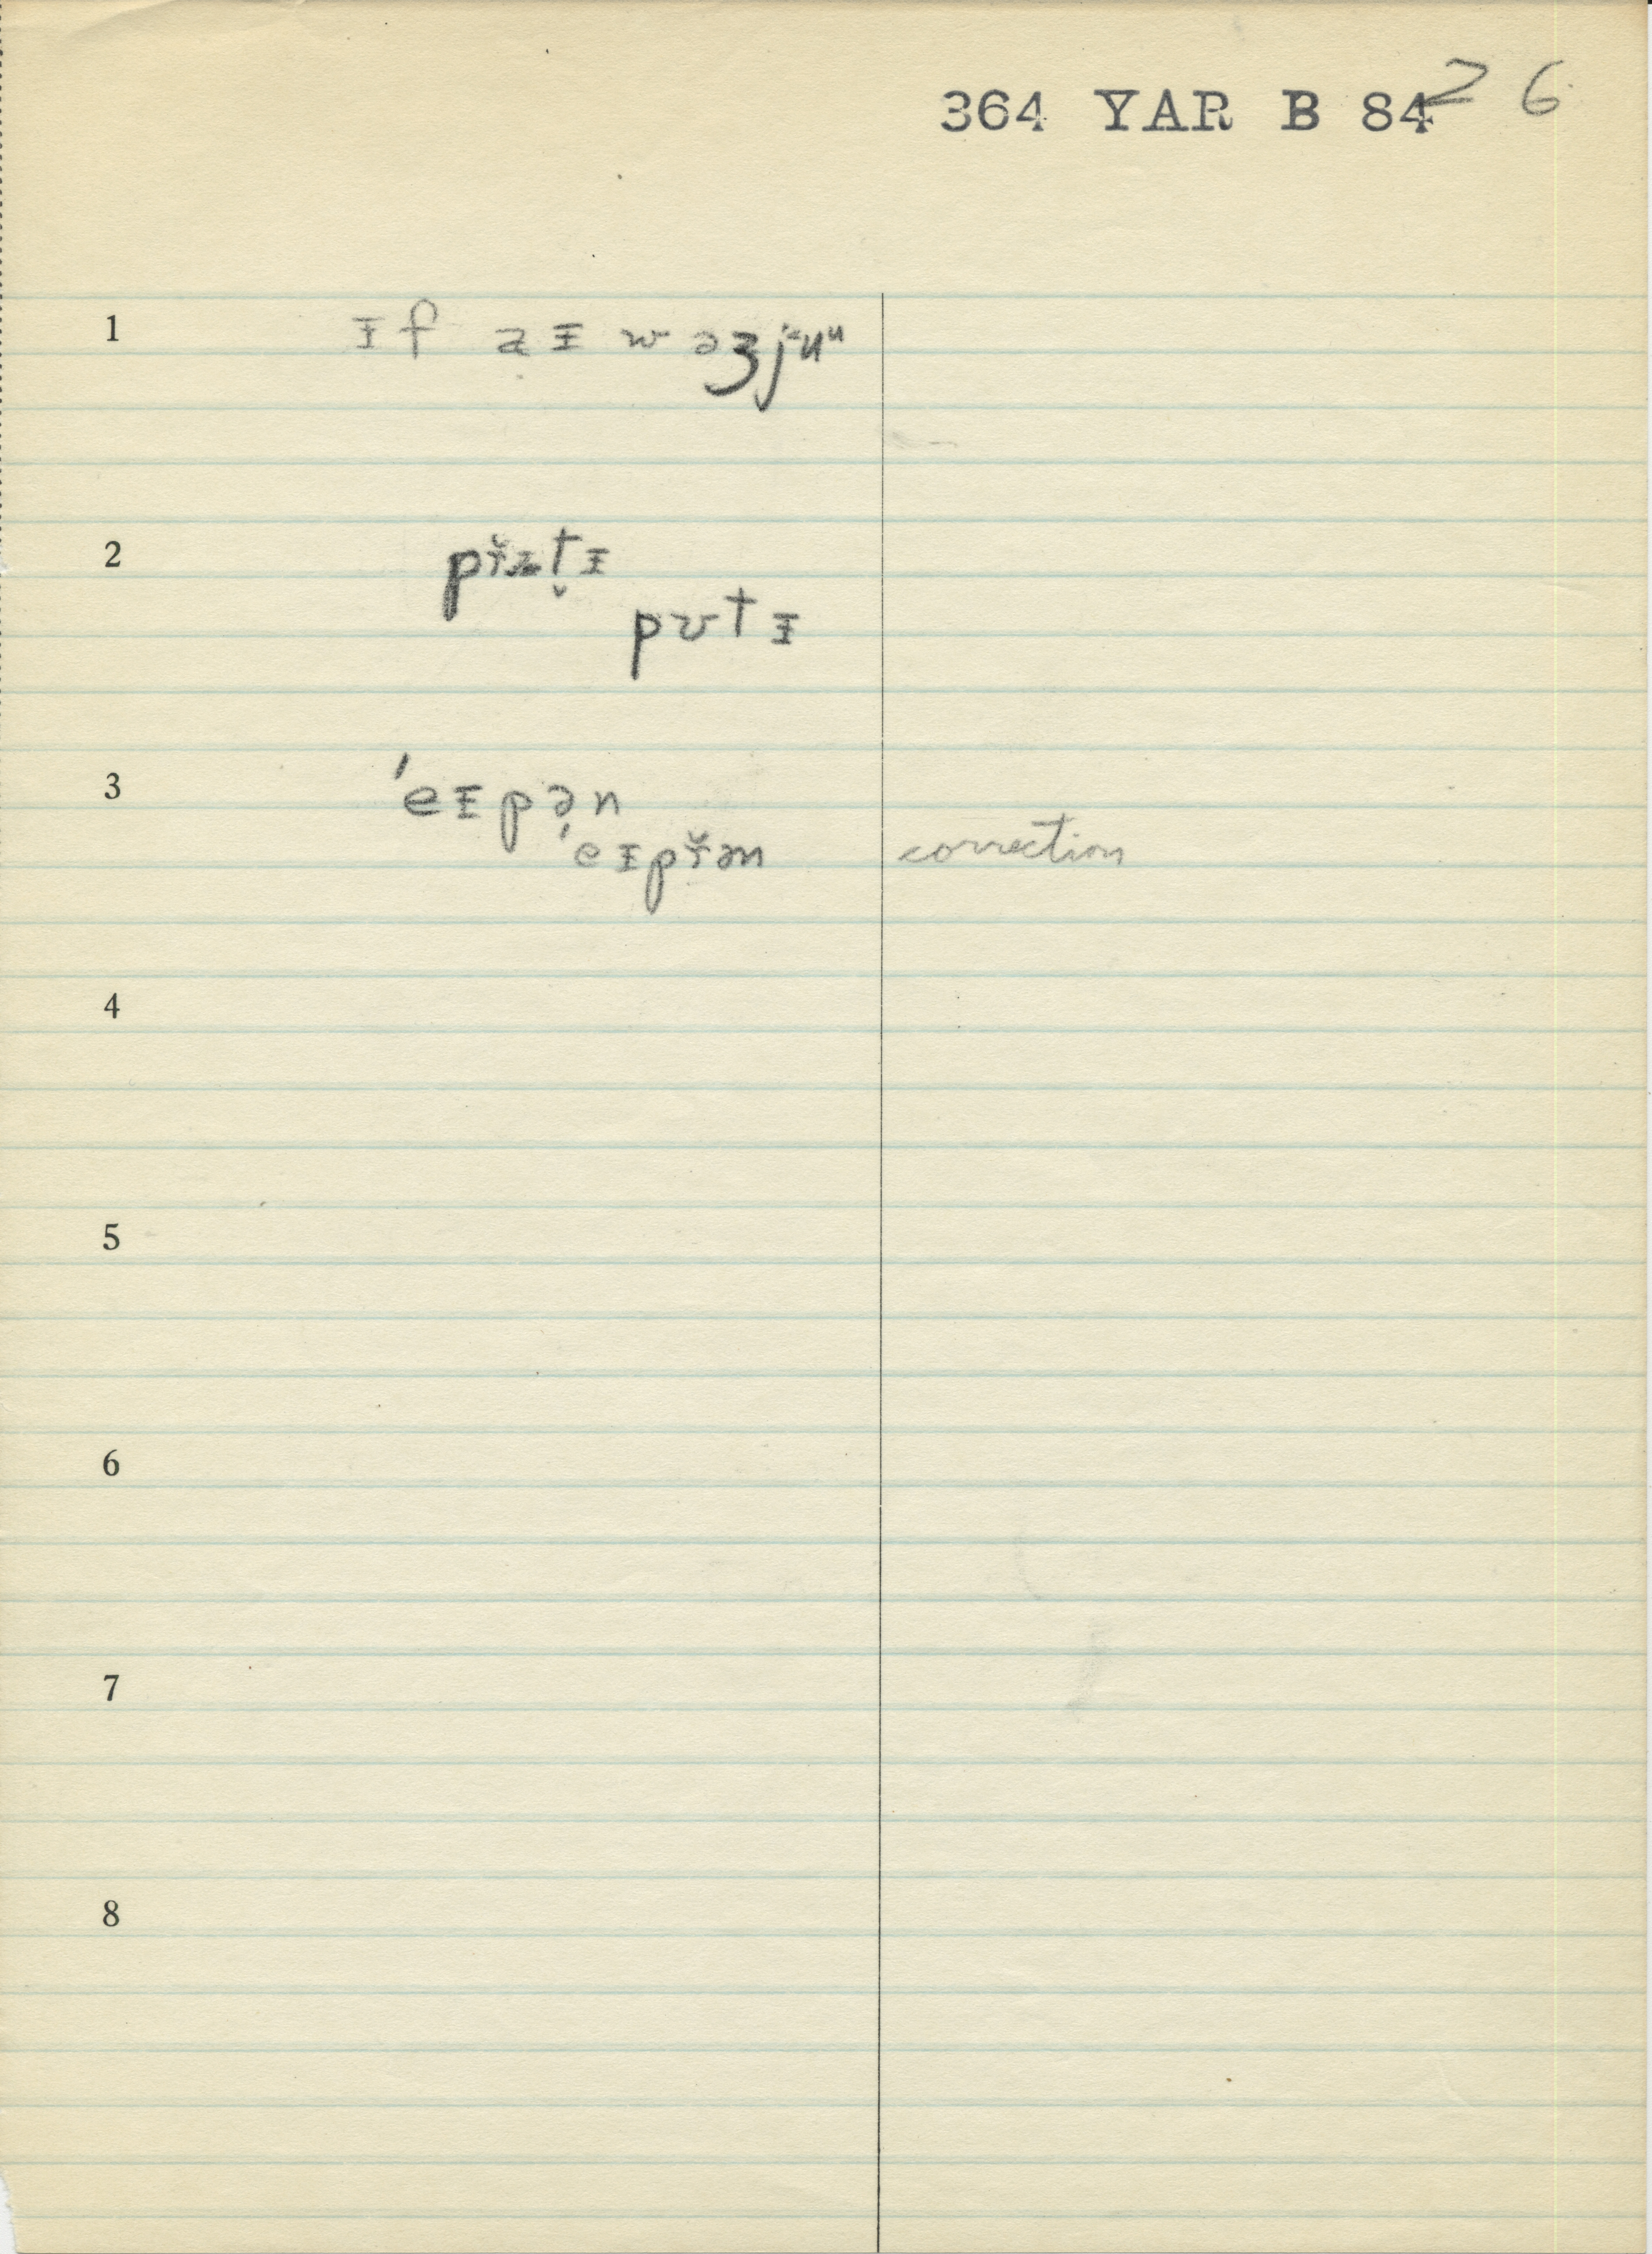 364 YAR B 84 26
1 ɪf aɪ wəʒjᵾuᵘ
2
pʊtɪ
3 ˈeɪpən
ˈeɪpřən correction
4
5
6
7
8